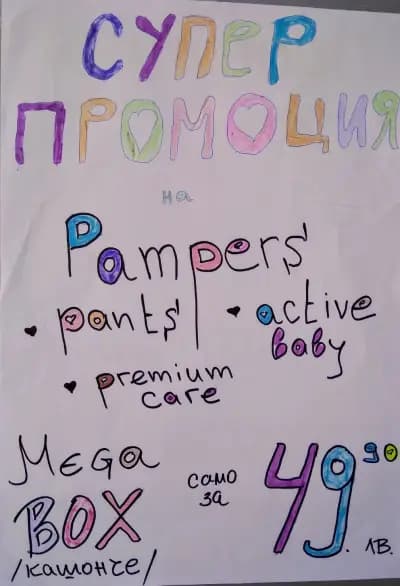 СУПЕР
ПРОМОЦИЯ
на
Pampers
pants
active
baby
premium
care
MEGA
BOX
/кашонче/
само
за
49.90 лв.